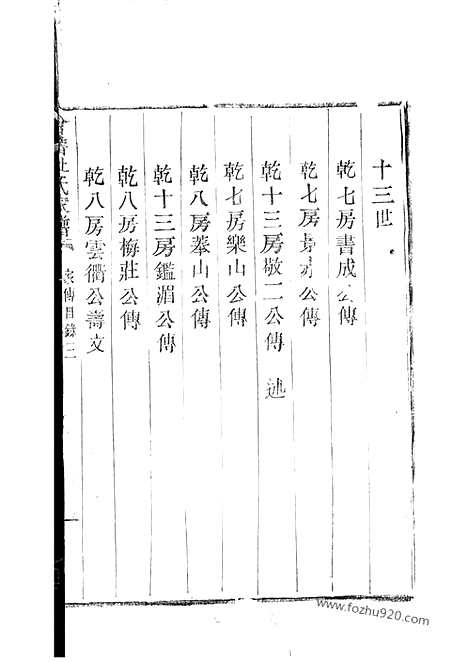 十三世
乾七房書成公傳
乾七房公傳
乾十三房敬二公傳 述
乾七房樂山公傳
乾八房峯山公傳
乾十三房鑑湄公傳
乾八房梅莊公傳
乾八房雲衢公壽文
杜氏家譜 家傳目錄 二
www.fozhu920.com